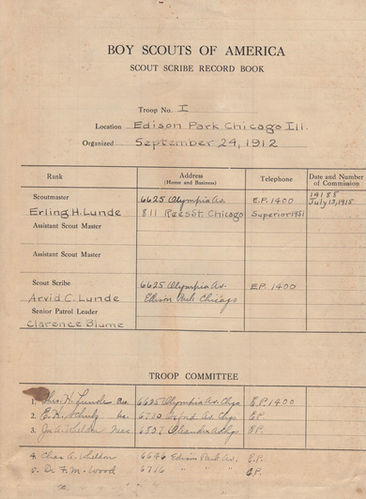 BOY SCOUTS OF AMERICA
SCOUT SCRIBE RECORD BOOK
Troop No. I
Location Edison Park Chicago Ill.
Organized September 24, 1912
Rank Address Telephone Date and Number
(Home and Business) of Commission
Scoutmaster 6625 Olympia Av. E.P. 1400 14188
Erling H. Lunde 811 Chicago Superior July 13, 1915
Assistant Scout Master
Assistant Scout Master
Scout Scribe 6625 Olympia Av. E.P. 1400
Arvid C. Lunde Edison Park Chicago
Senior Patrol Leader
Clarence Blume
TROOP COMMITTEE
1. H. Lunde 6625 Olympia Av. Chgo E.P. 1400
2. E.P.
3. E.P.
4. Chas. 6646 Edison Park Av. E.P.
5. Dr. F. M. Wood 6716 " " E.P.